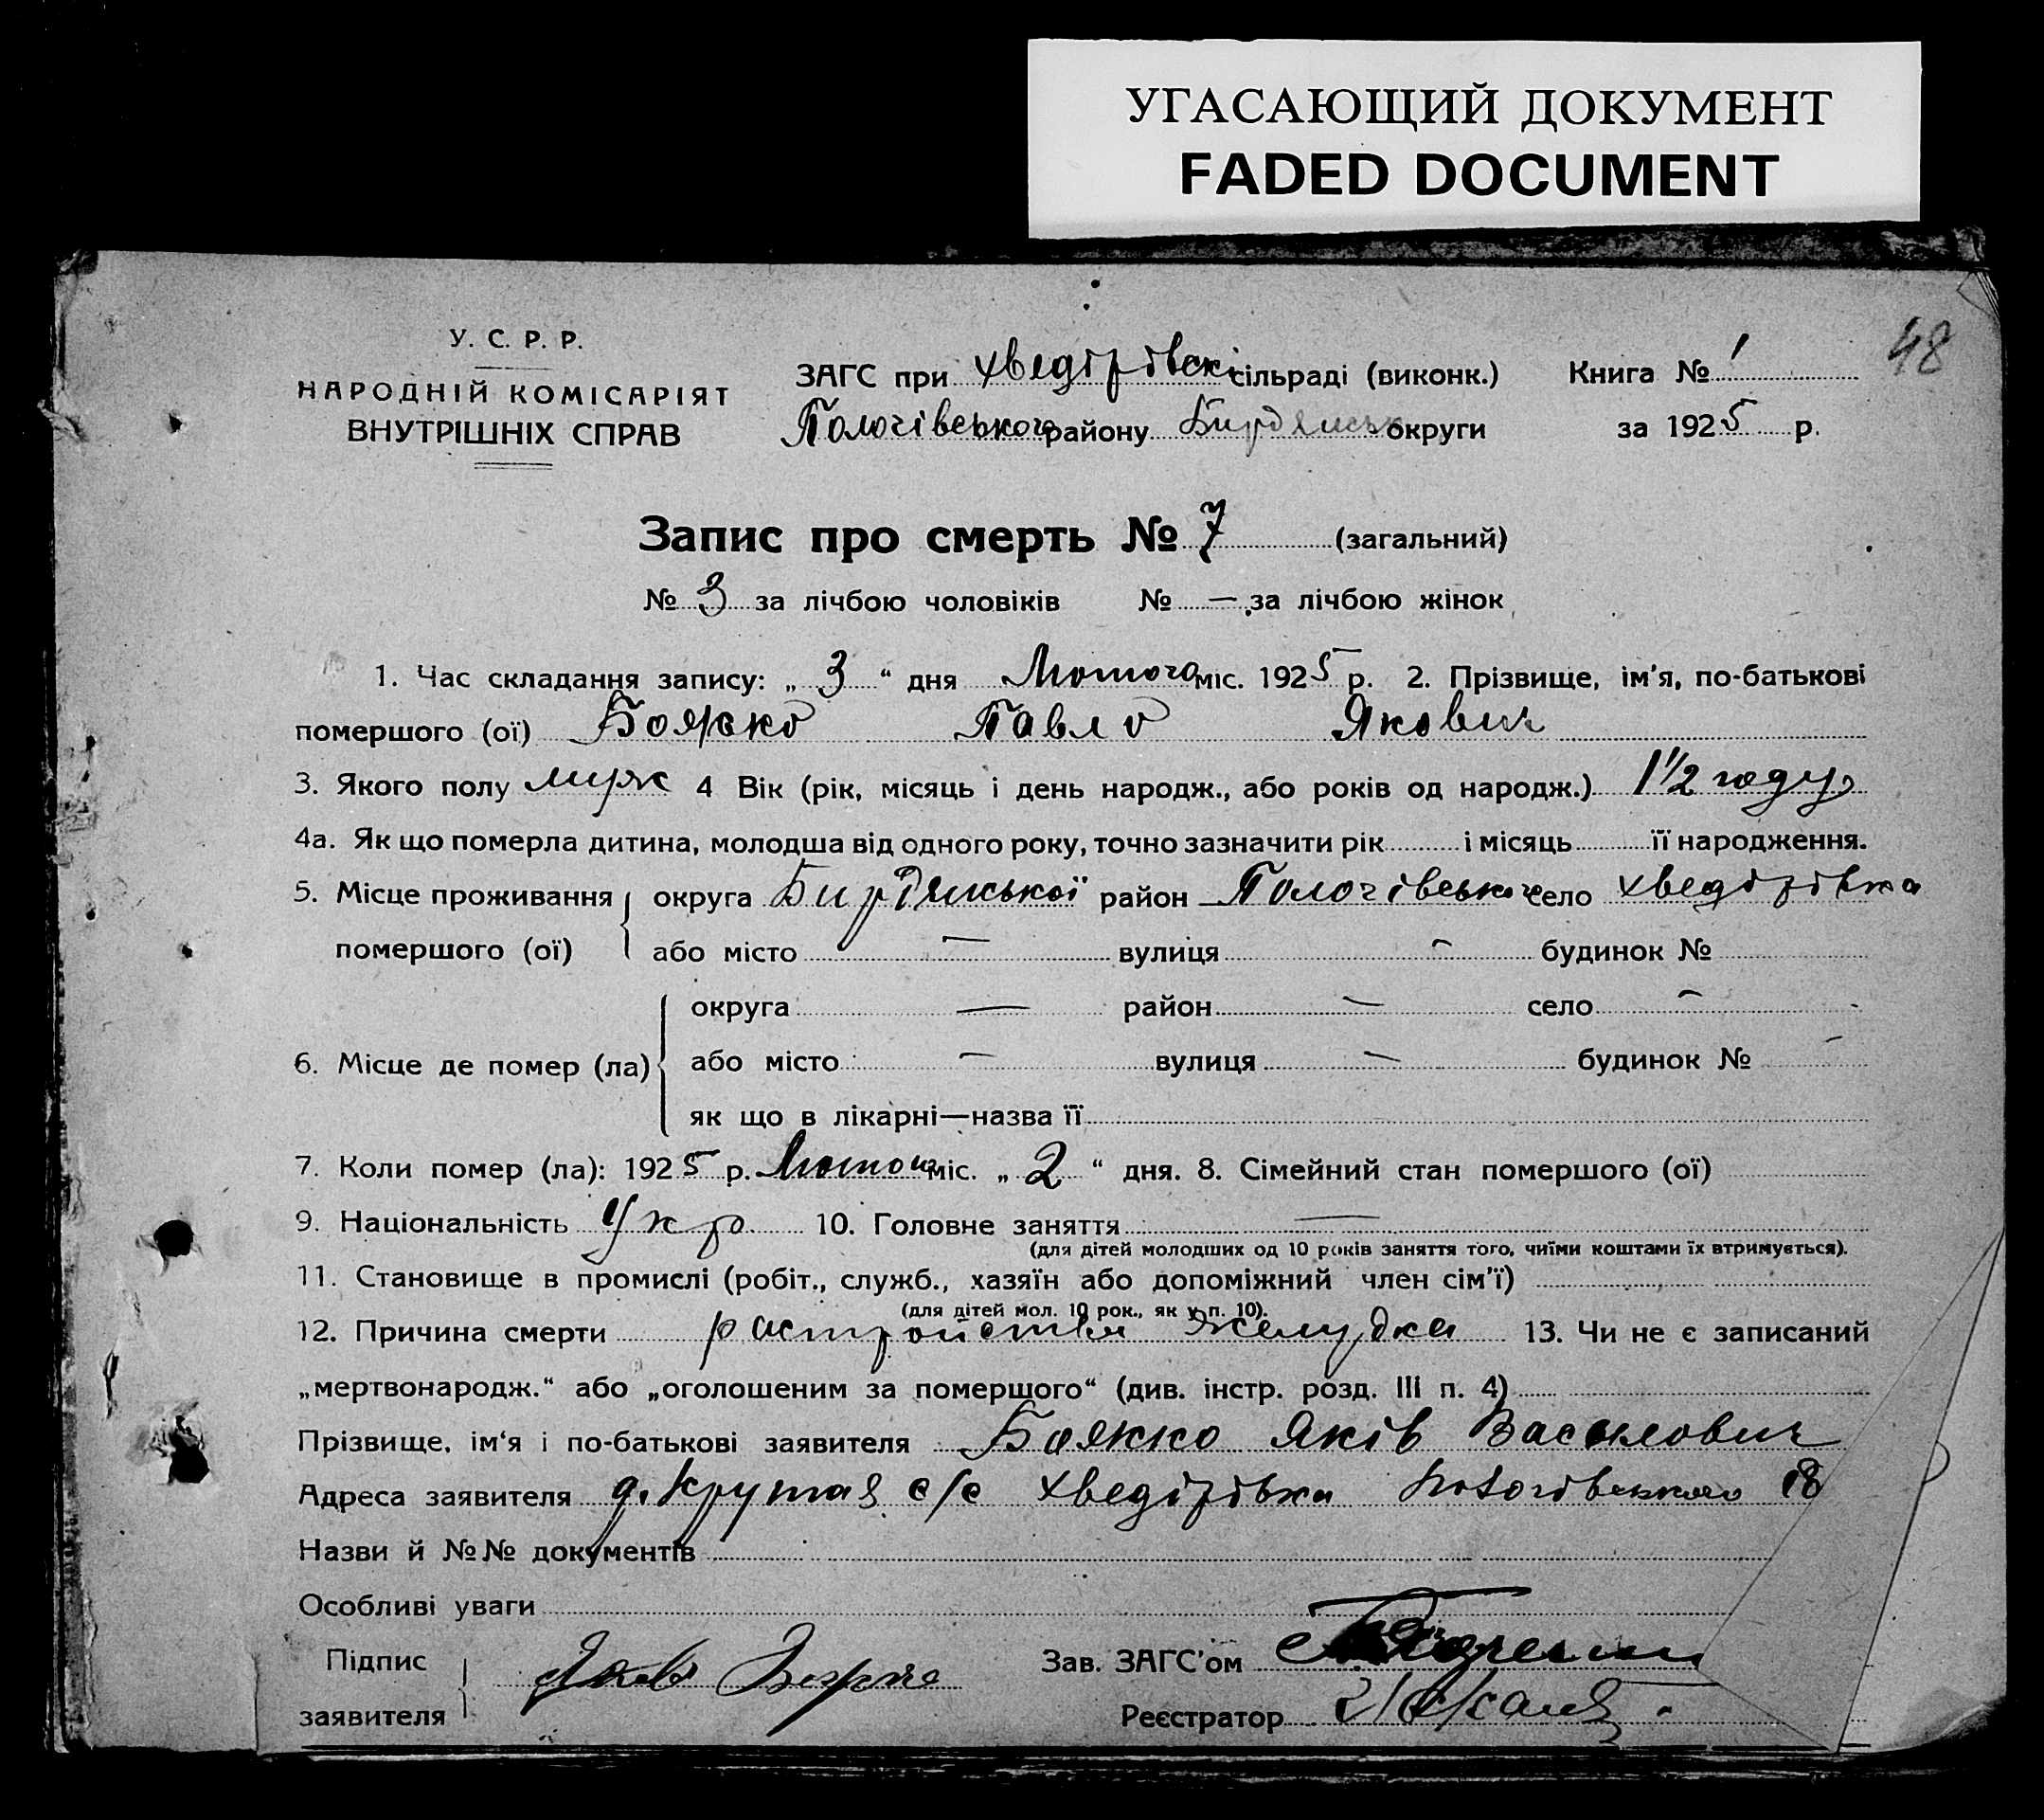 УГАСАЮЩИЙ ДОКУМЕНТ
FADED DOCUMENT
48
У. С. Р. Р.
НАРОДНІЙ КОМІСАРІЯТ
ВНУТРІШНІХ СПРАВ
ЗАГС при Хведірівскі сільраді (виконк.) Книга № 1
Пологівського району Бирдянськ округи за 1925 р.
Запис про смерть № 7 (загальний)
№ 3 за лічбою чоловіків № — за лічбою жінок
1. Час складання запису: „ 3 “ дня Лютого міс. 1925 р. 2. Прізвище, ім'я, по-батькові
помершого (ої) Бояжко Павло Якович
3. Якого полу муж 4 Вік (рік, місяць і день народж., або років од народж.) 1 1/2 году
4а. Як що померла дитина, молодша від одного року, точно зазначити рік і місяць її народження.
5. Місце проживання помершого (ої) округа Бирдянської район Пологівського село Хведірівка
або місто — вулиця — будинок №
6. Місце де помер (ла) округа — район — село —
або місто — вулиця — будинок № —
як що в лікарні—назва її
7. Коли помер (ла): 1925 р. Лютого міс. „ 2 “ дня. 8. Сімейний стан помершого (ої)
9. Національність Укр 10. Головне заняття —
(для дітей молодших од 10 років заняття того, чиїми коштами їх втримується).
11. Становище в промислі (робіт., служб., хазяїн або допоміжний член сім'ї)
(для дітей мол. 10 рок., як у п. 10).
12. Причина смерти растройства желудка 13. Чи не є записаний
„мертвонародж.“ або „оголошеним за помершого“ (див. інстр. розд. III п. 4)
Прізвище, ім'я і по-батькові заявителя Бояжко Яків Васылович
Адреса заявителя д. Крутая с/с Хведірівка Пологівського
Назви й №№ документів
Особливі уваги
Підпис заявителя Яків
Зав. ЗАГС'ом
Реєстратор